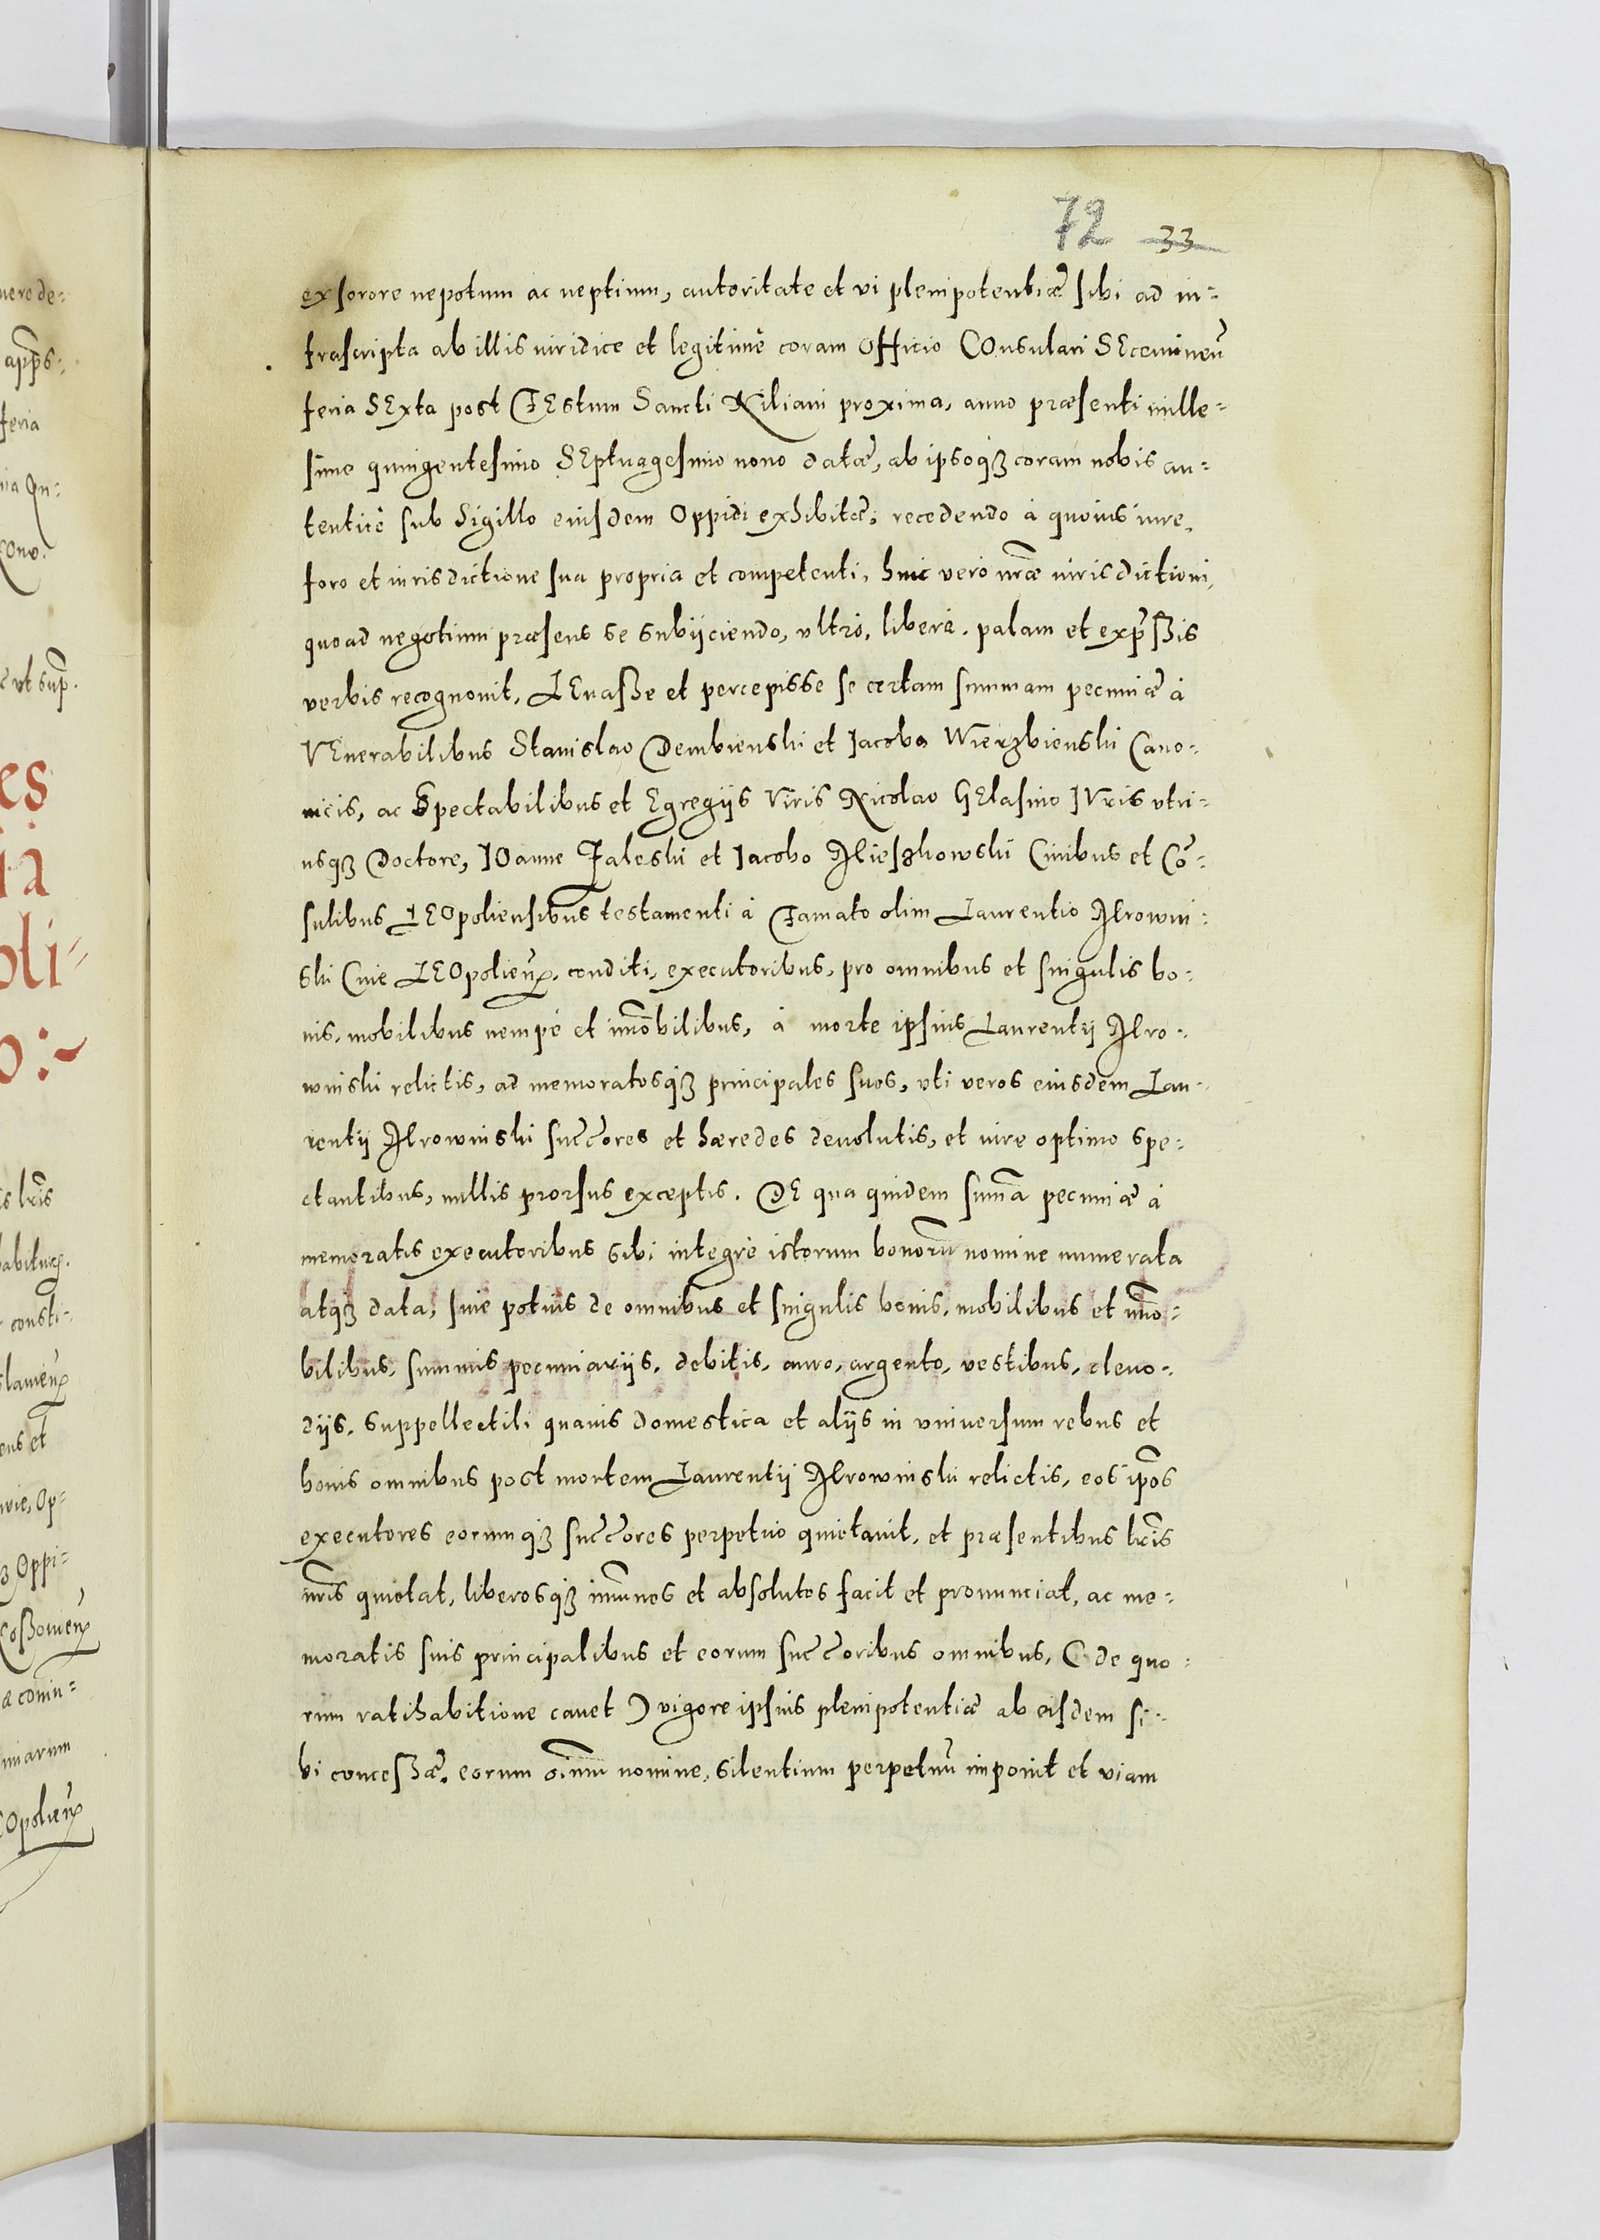 72 33
ex sorore nepotum ac neptium, autoritate et vi plenipotentiæ sibi ad in-
frascripta ab illis iuridice et legitimè coram Officio COnsulari SEceminen͂
feria SExta post FEstum Sancti Kiliani proxima, anno præsenti mille-
simo quingentesimo SEptuagesimo nono datæ, ab ipsoqꝫ coram nobis au-
tenticè sub Sigillo eiusdem Oppidi exhibitæ, recedendo à quouis iure,
foro et iurisdictione sua propria et competenti, huic vero nr̃æ iurisdictioni,
quoad negotium præsens se subijciendo, vltrò, liberè, palam et exp̃ßis
verbis recognouit, LEuaße et percepisse se certam summam pecuniæ à
VEnerabilibus Stanislao Dembienski et Jacobo Wierzbienski Cano-
nicis, ac Spectabilibus et Egregijs Viris Nicolao GElasino IVris vtri-
usqꝫ Doctore, JOanne Zaleski et Jacobo Mieszkowski Ciuibus et Cõ-
sulibus LEOpoliensibus testamenti à Famato olim Laurentio Mrowin-
ski Ciue LEOpolien͂, conditi, executoribus, pro omnibus et singulis bo-
nis, mobilibus nempè et im̃obilibus, à morte ipsius Laurentij Mro-
winski relictis, ad memoratosqꝫ principales suos, vti veros eiusdem Lau-
rentij Mrowinski succ̃ores et hæredes deuolutis, et iure optimo spe-
ctantibus, nullis prorsus exceptis. DE qua quidem sum̃a pecuniæ à
memoratis executoribus sibi integrè istorum bonorũ nomine numerata
atqꝫ data, siue potius de omnibus et singulis bonis, mobilibus et im̃o-
bilibus, summis pecuniarijs, debitis, auro, argento, vestibus, cleno-
dijs, suppellectili quauis domestica et alijs in vniuersum rebus et
bonis omnibus post mortem Laurentij Mrowinski relictis, eos ip̃os
executores eorumqꝫ succ̃ores perpetuo quietauit, et præsentibus lr̃is
nr̃is quietat, liberosqꝫ im̃unes et absolutos facit et pronunciat, ac me-
moratis suis principalibus et eorum succ̃oribus omnibus, (de quo-
rum ratihabitione cauet) vigore ipsius plenipotentiæ ab eisdem si-
bi conceßæ, eorum om̃ium nomine, silentium perpetuũ imponit et viam